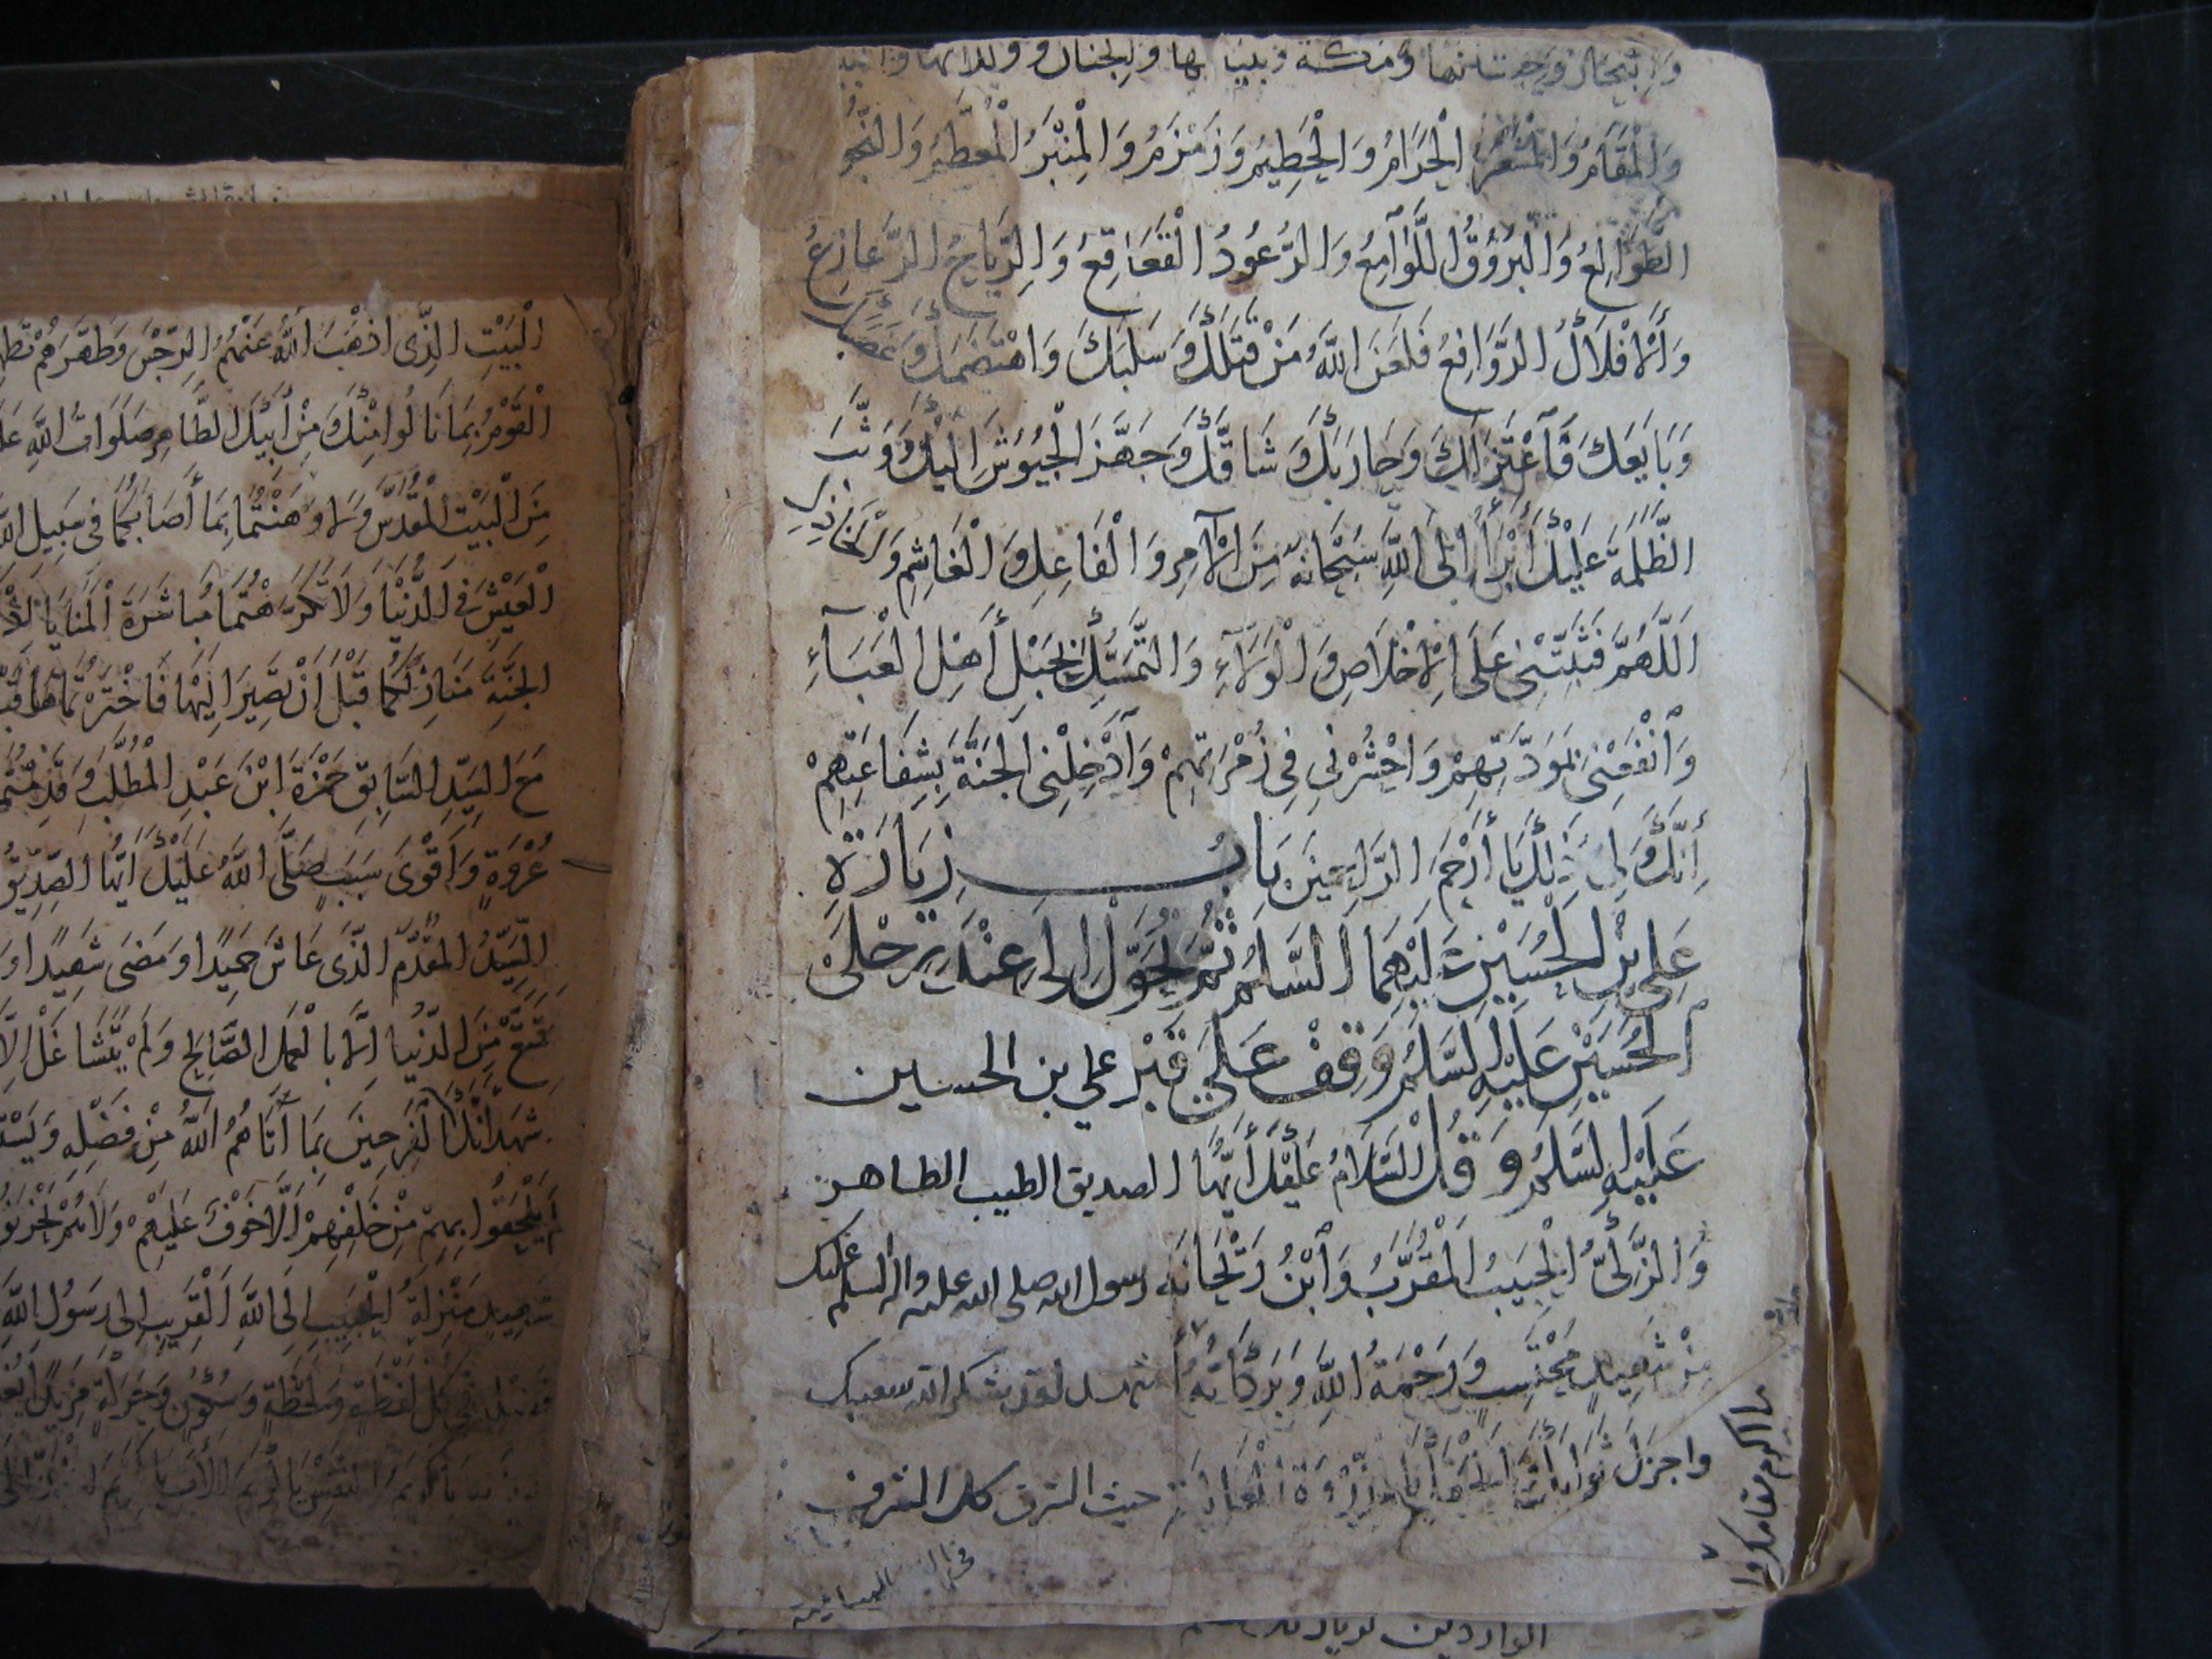 والبحار وحيتانها ومكة وبنيانها والجنان وولدانها
وَالْمَقَامُ وَالْمَشْعَرُ الْحَرَامُ وَالْحَطِيمُ وَزَمْزَمُ وَالْمِنْبَرُ الْمُعَظَّمُ وَالنُّجُومُ
الطَّوَالِعُ وَالْبُرُوقُ اللَّوَامِعُ وَالرُّعُودُ الْقَعَاقِعُ وَالرِّيَاحُ الزَّعَازِعُ
وَالْأَفْلَاكُ الرَّوَافِعُ فَلَعَنَ اللَّهُ مَنْ قَتَلَكَ وَسَلَبَكَ وَاهْتَضَمَكَ وَغَصَبَكَ
وَبَايَعَكَ فَاعْتَزَلَكَ وَحَارَبَكَ وَشَاقَّكَ وَجَهَّزَ الْجُيُوشَ إِلَيْكَ وَوَثَّبَ
الظَّلَمَةَ عَلَيْكَ أَبْرَأُ إِلَى اللَّهِ سُبْحَانَهُ مِنَ الْآمِرِ وَالْفَاعِلِ وَالْغَاشِمِ وَالْخَاذِلِ
اَللَّهُمَّ فَثَبِّتْنِي عَلَى الْإِخْلَاصِ وَالْوَلَاءِ وَالتَّمَسُّكِ بِحَبْلِ أَهْلِ الْعَبَاءِ
وَانْفَعْنِي بِمَوَدَّتِهِمْ وَاحْشُرْنِي فِي زُمْرَتِهِمْ وَأَدْخِلْنِي الْجَنَّةَ بِشَفَاعَتِهِمْ
إِنَّكَ وَلِيُّ ذَلِكَ يَا أَرْحَمَ الرَّاحِمِينَ بَابُ زِيَارَةِ
عَلِيِّ بْنِ الْحُسَيْنِ عَلَيْهِمَا السَّلَامُ ثُمَّ تَحَوَّلْ إِلَى عِنْدِ رِجْلَيِ
الْحُسَيْنِ عَلَيْهِ السَّلَامُ وَقِفْ عَلَى قَبْرِ علي بن الحسين
عَلَيْهِ السَّلَامُ وَقُلْ السَّلَامُ عَلَيْكَ أَيُّهَا الصديق الطيب الطاهر
وَالزَّكِيُّ الْحَبِيبُ الْمُقَرَّبُ وَابْنُ رَيْحَانَة رسول الله صلى الله عليه واله السلم عليك
مِنْ شَهِيدٍ مُحْتَسِبٍ وَرَحْمَةُ اللَّهِ وَبَرَكَاتُهُ لقد شكر الله سعيك
واجزل ثوابك وألحقك بِالذُّرْوَةِ الْعَالِيَةِ حيث الشرف كل الشرف
الْبَيْتِ الَّذِي أَذْهَبَ اللَّهُ عَنْهُمُ الرِّجْسَ وَطَهَّرَهُمْ
الْقَوْمُ بِمَا نَالُوا مِنْكَ وَمِنْ أَبِيكَ الطَّاهِرِ صَلَوَاتُ اللَّهِ
مِنَ الْبَيْتِ الْمُقَدَّسِ وَلَا وَهَنْتُمَا بِمَا أَصَابَكُمَا فِي سَبِيلِ اللَّهِ
الْعَيْشِ فِي الدُّنْيَا وَلَا تَكَرَّهْتُمَا مُبَاشَرَةَ الْمَنَايَا إِذْ
الْجَنَّةِ مَنَازِلَكُمَا قَبْلَ أَنْ تَصِيرَا إِلَيْهَا فَاخْتَرْتُمَاهَا
مَعَ السَّيِّدِ السَّابِقِ حَمْزَةَ ابْنِ عَبْدِ الْمُطَّلِبِ وَقَدِمْتُمَا
عُرْوَةٍ وَأَقْوَى سَبَبٍ صَلَّى اللَّهُ عَلَيْكَ أَيُّهَا الصِّدِّيقُ
السَّيِّدُ الْمُقَدَّمُ الَّذِي عَاشَ حَمِيدًا وَمَضَى شَهِيدًا
تَتَمَتَّعْ مِنَ الدُّنْيَا إِلَّا بِالْعَمَلِ الصَّالِحِ وَلَمْ يَتَشَاغَلْ إِلَّا
الْفَرِحِينَ بِمَا آتَاهُمُ اللَّهُ مِنْ فَضْلِهِ
يَلْحَقُوا بِهِمْ مِنْ خَلْفِهِمْ أَلَّا خَوْفٌ عَلَيْهِمْ وَلَا هُمْ يَحْزَنُونَ
شَهِيدٍ مَنْزِلَةَ الْحَبِيبِ إِلَى اللَّهِ الْقَرِيبِ إِلَى رَسُولِ اللَّهِ
كُلِّ لَفْظَةٍ وَلَحْظَةٍ وَسُكُونٍ وَحَرَكَةٍ مَزِيدًا